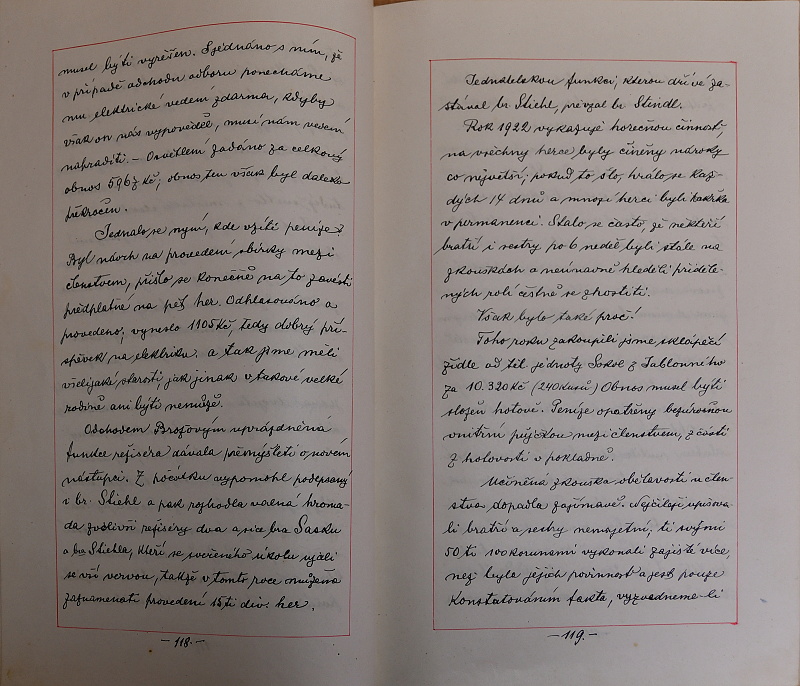 musel býti vyřešen. Sjednáno s ním, že
v případě odchodu odboru ponecháme
mu elektrické vedení zdarma, kdyby
však on nás vypověděl, musí nám vedení
nahraditi. – Osvětlení zadáno za celkový
obnos 5967 Kč, obnos ten však byl daleko
překročen.
Jednalo se nyní, kde vzíti peníze?
Byl návrh na provedení sbírky mezi
členstvem, přišlo se konečně na to zavésti
předplatné na pět her. Odhlasováno a
provedeno, vyneslo 1105 Kč, tedy dobrý pří-
spěvek na elektriku. a tak jsme měli
všelijaké starosti, jak jinak v takové velké
rodině ani býti nemůže.
Odchodem Brožovým uprázdněná
funkce režiséra dávala přemýšleti o novém
nástupci. Z počátku vypomohl podepsaný
i br. Stiehl a pak rozhodla valná hroma-
da zvolivši režiséry dva a sice bra Sasku
a bra Stiehla, kteří se svěřeného úkolu ujali
se vší vervou, takže v tomto roce můžeme
zaznamenati provedení 15ti div. her.
– 118. –
Jednatelskou funkci, kterou dříve za-
stával br. Stiehl, převzal br. Steidl.
Rok 1922 vykazuje horečnou činnost,
na všechny herce byly činěny nároky
co největší; pokud to šlo, hrálo se kaž-
dých 14 dnů a mnozí herci byli takřka
v permanenci. Stalo se často, že někteří
bratři i sestry po 6 neděl byli stále na
zkouškách a neúnavně hleděli příděle-
ných rolí čestně se zhostiti.
Však bylo také proč!
Toho roku zakoupili jsme sklápěcí
židle od těl. jednoty Sokol z Jablonného
za 10.320 Kč (240 kusů) Obnos musel býti
složen hotově. Peníze opatřeny bezúročnou
vnitřní půjčkou mezi členstvem, z části
z hotovosti v pokladně.
Učiněná zkouška obětavosti u člen-
stva dopadla zajímavě. Nejčileji upisova-
li bratři a sestry nemajetní, ti svými
50 ti 100 korunami vykonali zajisté více,
než byla jejich povinnost a jest pouze
konstatováním fakta, vyzvedneme-li
– 119. –